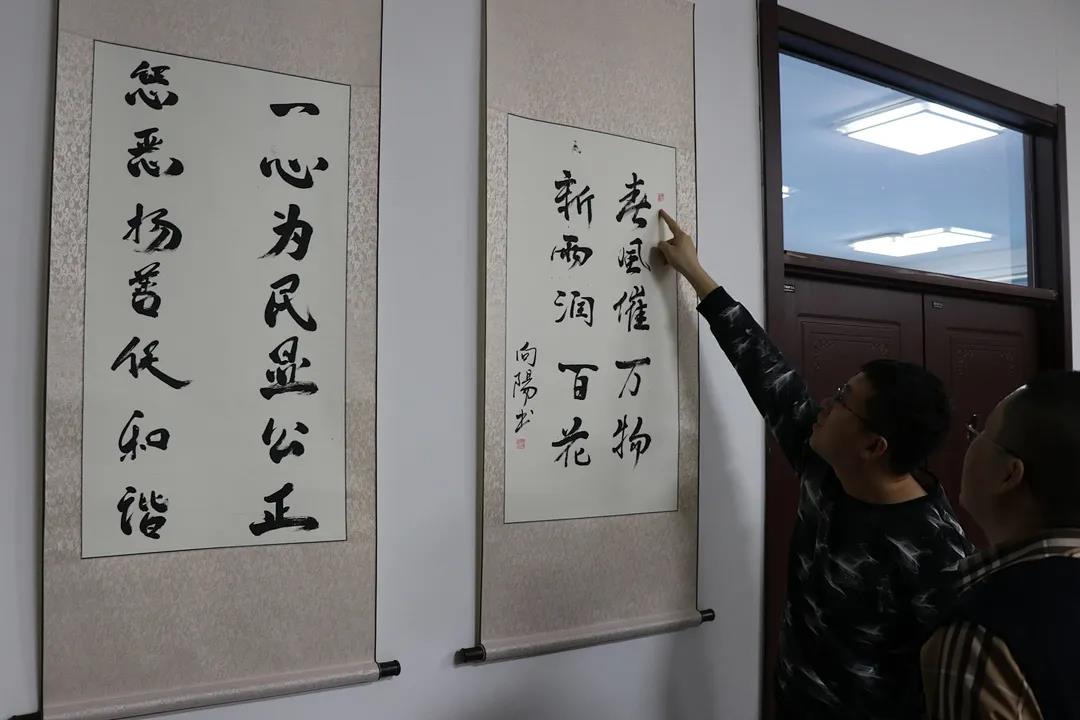 春風催万物
新雨润百花
向陽书
一心为民显公正
惩恶扬善促和谐